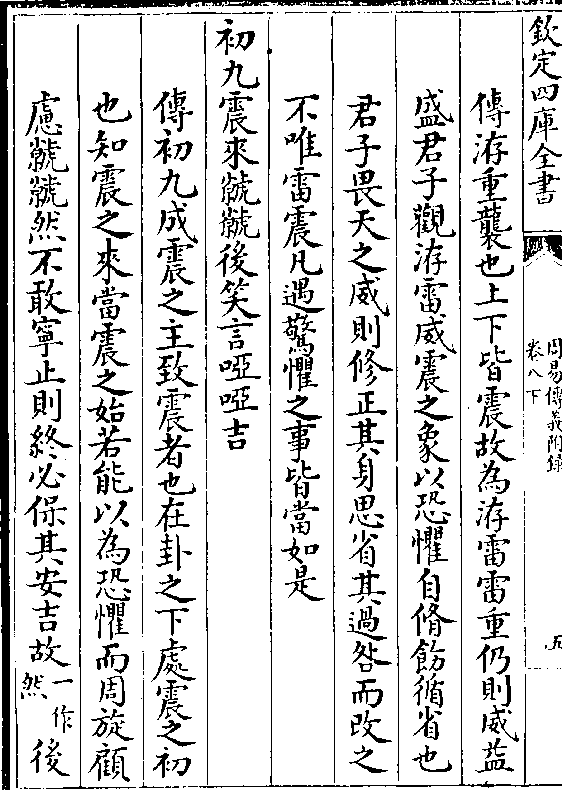 欽定四庫全書
周易傳義附録
卷八下
五
傳洊重襲也上下皆震故為洊雷雷重仍則威益
盛君子觀洊雷威震之象以恐懼自脩飭循省也
君子畏天之威則修正其身思省其過咎而改之
不唯雷震凡遇驚懼之事皆當如是
初九震來虩虩後笑言啞啞吉
傳初九成震之主致震者也在卦之下處震之初
也知震之來當震之始若能以為恐懼而周旋顧
慮虩虩然不敢寧止則終必保其安吉故一作然後